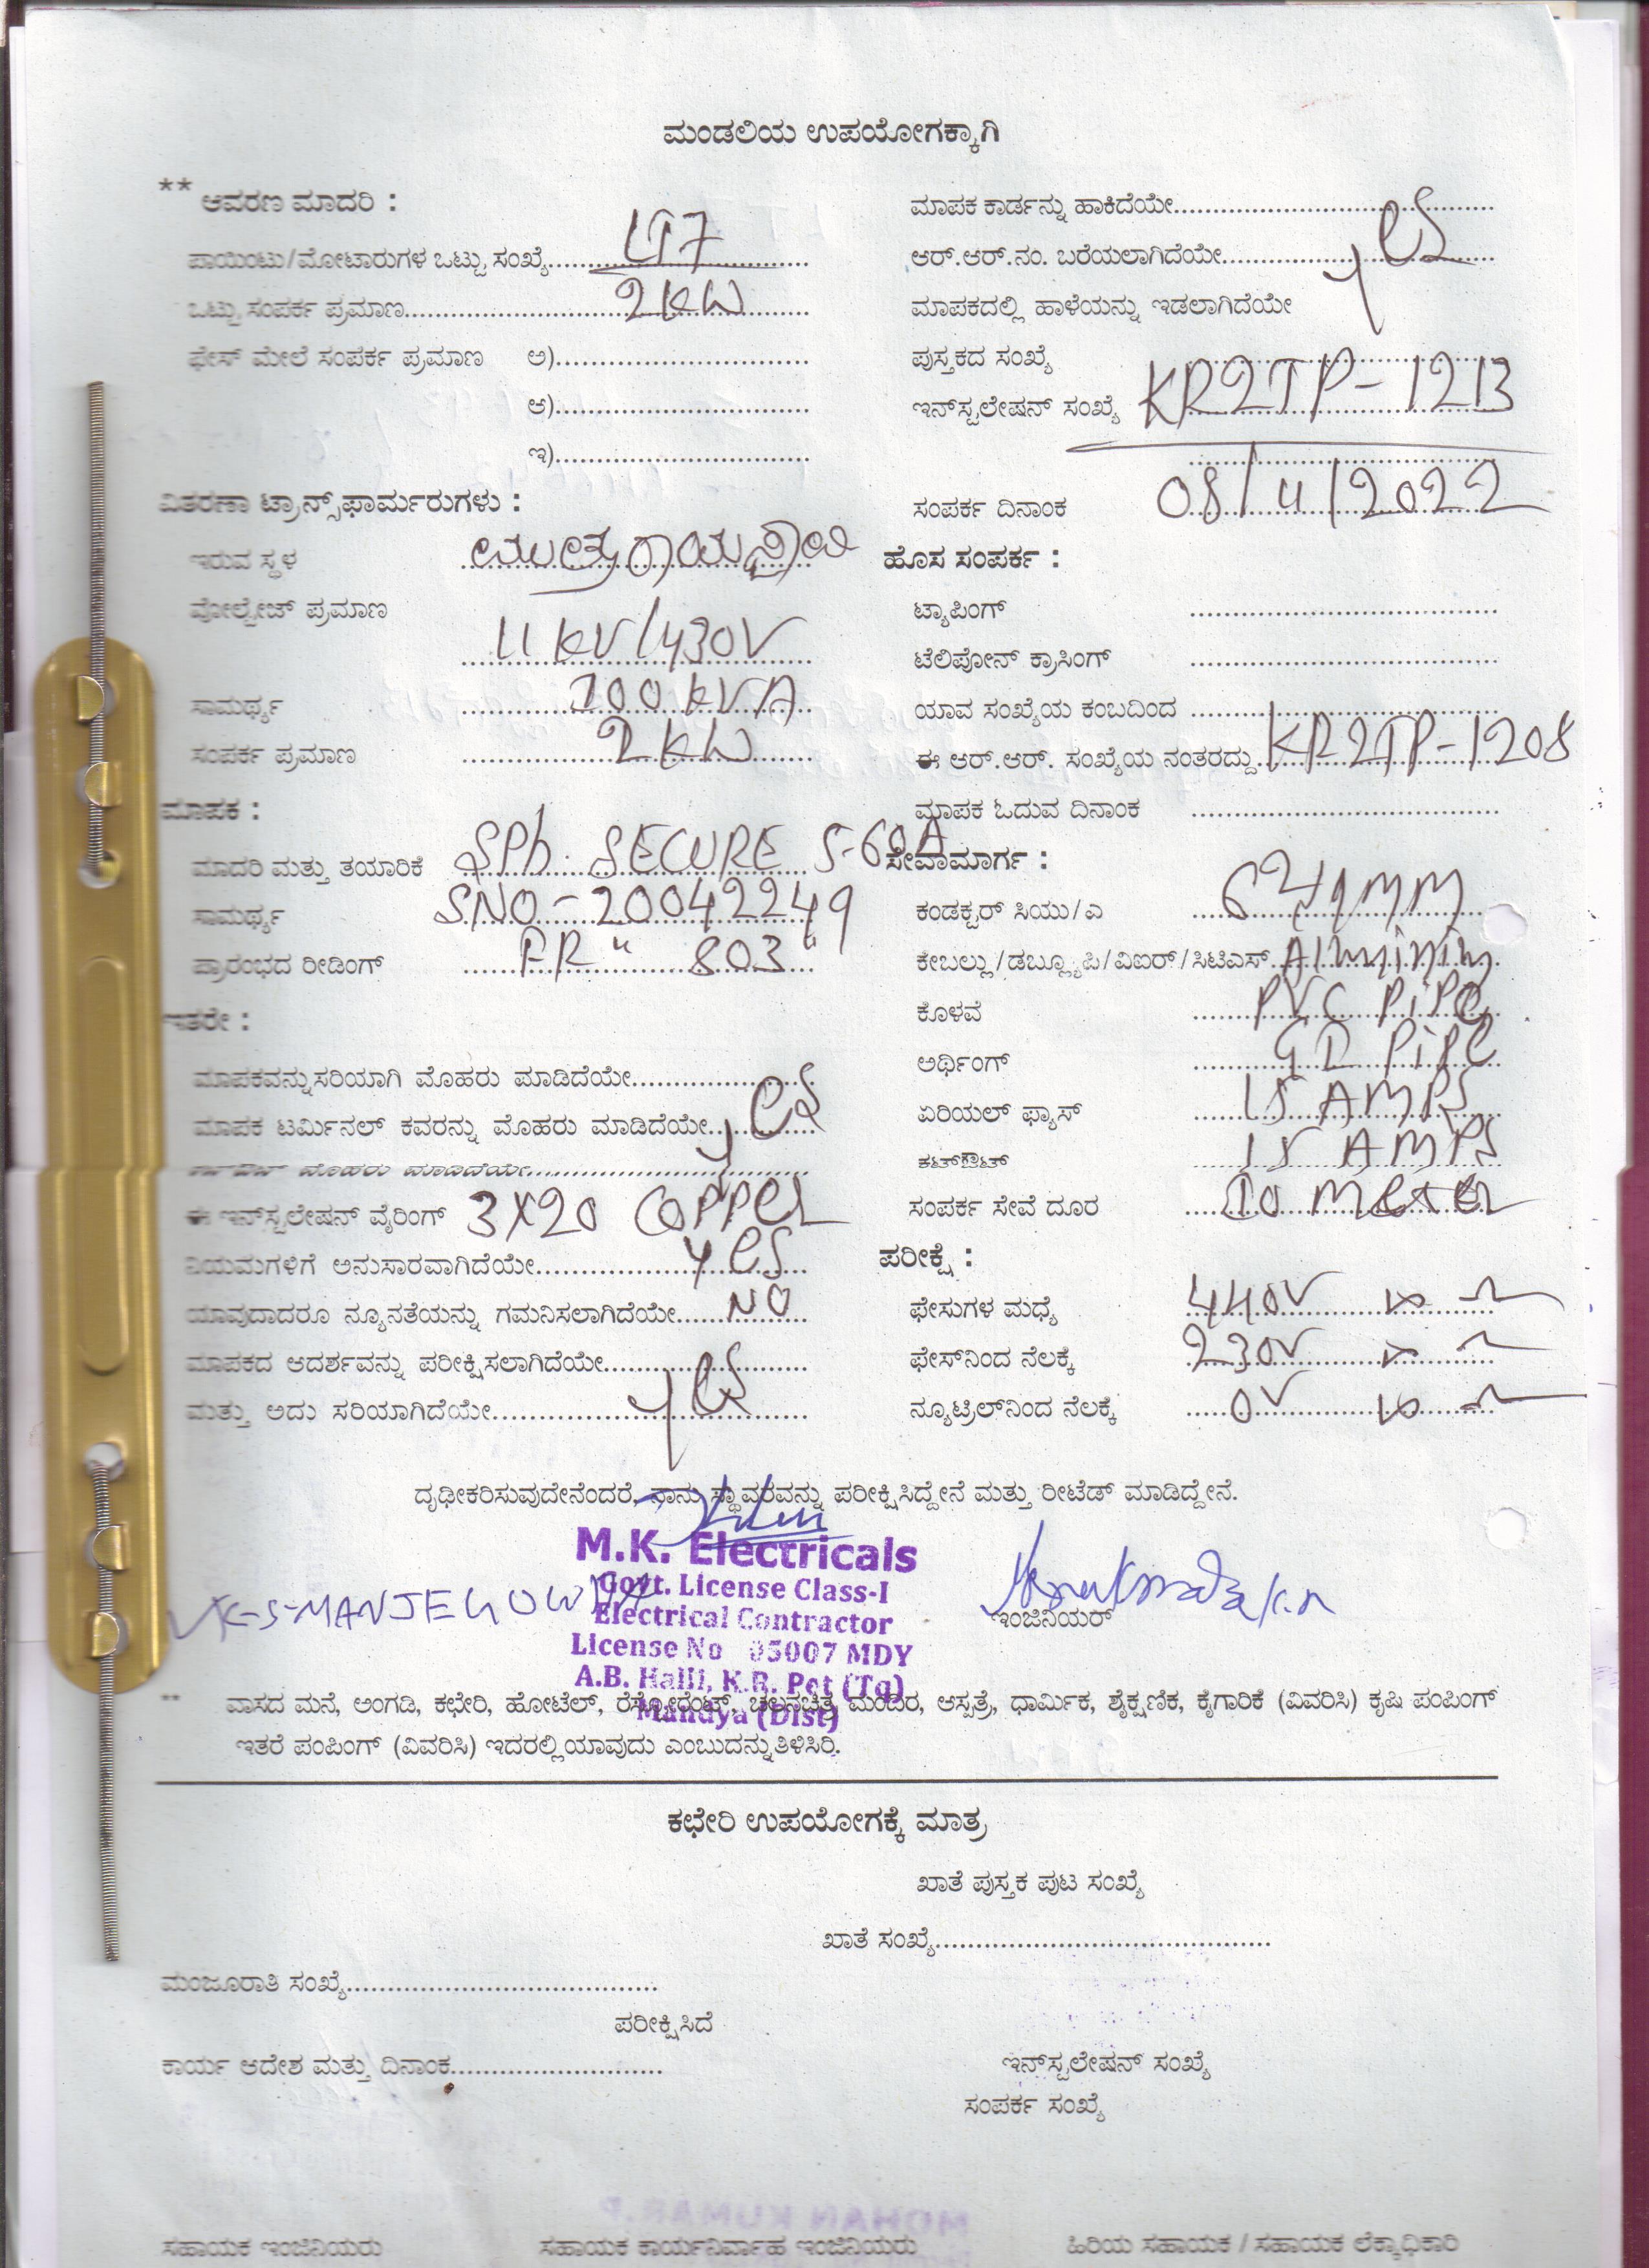 ಮಂಡಲಿಯ ಉಪಯೋಗಕ್ಕಾಗಿ
** ಆವರಣ ಮಾದರಿ :
ಪಾಯಿಂಟು/ಮೋಟಾರುಗಳ ಒಟ್ಟು ಸಂಖ್ಯೆ..... LT7
ಒಟ್ಟು ಸಂಪರ್ಕ ಪ್ರಮಾಣ..... 2KW
ಫೇಸ್ ಮೇಲೆ ಸಂಪರ್ಕ ಪ್ರಮಾಣ ಅ).....
ಆ).....
ಇ).....
ವಿತರಣಾ ಟ್ರಾನ್ಸ್‌ಫಾರ್ಮರುಗಳು :
ಇರುವ ಸ್ಥಳ
ವೋಲ್ಟೇಜ್ ಪ್ರಮಾಣ
11 KV/430V
ಸಾಮರ್ಥ್ಯ ..... 100 KVA
ಸಂಪರ್ಕ ಪ್ರಮಾಣ ..... 2KW
ಮಾಪಕ :
ಮಾದರಿ ಮತ್ತು ತಯಾರಿಕೆ SPh. SECURE 5-60A
ಸಾಮರ್ಥ್ಯ SNO-20042249
ಪ್ರಾರಂಭದ ರೀಡಿಂಗ್ ..... FR " 803 "
ಇತರೇ :
ಮಾಪಕವನ್ನು ಸರಿಯಾಗಿ ಮೊಹರು ಮಾಡಿದೆಯೇ.....
ಮಾಪಕ ಟರ್ಮಿನಲ್ ಕವರನ್ನು ಮೊಹರು ಮಾಡಿದೆಯೇ..... yes
ಮೊಹರು ಮಾಡಿದೆಯೇ.....
ಈ ಇನ್‌ಸ್ಟಲೇಷನ್ ವೈರಿಂಗ್ 3X20 COPPER
ನಿಯಮಗಳಿಗೆ ಅನುಸಾರವಾಗಿದೆಯೇ..... yes
ಯಾವುದಾದರೂ ನ್ಯೂನತೆಯನ್ನು ಗಮನಿಸಲಾಗಿದೆಯೇ..... NO
ಮಾಪಕದ ಆದರ್ಶವನ್ನು ಪರೀಕ್ಷಿಸಲಾಗಿದೆಯೇ.....
ಮತ್ತು ಅದು ಸರಿಯಾಗಿದೆಯೇ..... yes
ಮಾಪಕ ಕಾರ್ಡನ್ನು ಹಾಕಿದೆಯೇ.....
ಆರ್.ಆರ್.ನಂ. ಬರೆಯಲಾಗಿದೆಯೇ..... yes
ಮಾಪಕದಲ್ಲಿ ಹಾಳೆಯನ್ನು ಇಡಲಾಗಿದೆಯೇ
ಪುಸ್ತಕದ ಸಂಖ್ಯೆ
ಇನ್‌ಸ್ಟಲೇಷನ್ ಸಂಖ್ಯೆ KR2TP-1213
ಸಂಪರ್ಕ ದಿನಾಂಕ 08/11/2022
ಹೊಸ ಸಂಪರ್ಕ :
ಟ್ಯಾಪಿಂಗ್ .....
ಟೆಲಿಪೋನ್ ಕ್ರಾಸಿಂಗ್ .....
ಯಾವ ಸಂಖ್ಯೆಯ ಕಂಬದಿಂದ .....
ಈ ಆರ್.ಆರ್. ಸಂಖ್ಯೆಯ ನಂತರದ್ದು KR2TP-1208
ಮಾಪಕ ಓದುವ ದಿನಾಂಕ .....
ಸೇವಾಮಾರ್ಗ :
ಕಂಡಕ್ಟರ್ ಸಿಯು/ಎ ..... 6 sqmm
ಕೇಬಲ್ಲು/ಡಬ್ಲ್ಯೂಪಿ/ವಿಐರ್/ಸಿಟಿಎಸ್
ಕೊಳವೆ ..... PVC Pipe
ಅರ್ಥಿಂಗ್ ..... GI Pipe
ಏರಿಯಲ್ ಫ್ಯೂಸ್ ..... 15 AMPS
ಕಟ್‌ಔಟ್ ..... 15 AMPS
ಸಂಪರ್ಕ ಸೇವೆ ದೂರ ..... 10 Meter
ಪರೀಕ್ಷೆ :
ಫೇಸುಗಳ ಮಧ್ಯೆ 440V
ಫೇಸ್‌ನಿಂದ ನೆಲಕ್ಕೆ 230V
ನ್ಯೂಟ್ರಿಲ್‌ನಿಂದ ನೆಲಕ್ಕೆ 0V
ದೃಢೀಕರಿಸುವುದೇನೆಂದರೆ, ನಾನು ಸ್ಥಾವರವನ್ನು ಪರೀಕ್ಷಿಸಿದ್ದೇನೆ ಮತ್ತು ರೀಟೆಡ್ ಮಾಡಿದ್ದೇನೆ.
K-S-MANJEGOWDA
M.K. Electricals
Govt. License Class-I
Electrical Contractor
License No 05007 MDY
A.B. Halli, K.R. Pet (Tq)
Mandya (Dist)
ಇಂಜಿನಿಯರ್
** ವಾಸದ ಮನೆ, ಅಂಗಡಿ, ಕಛೇರಿ, ಹೋಟೆಲ್, ರೆಸ್ಟೋರೆಂಟ್, ಚಲನಚಿತ್ರ ಮಂದಿರ, ಆಸ್ಪತ್ರೆ, ಧಾರ್ಮಿಕ, ಶೈಕ್ಷಣಿಕ, ಕೈಗಾರಿಕೆ (ವಿವರಿಸಿ) ಕೃಷಿ ಪಂಪಿಂಗ್
ಇತರೆ ಪಂಪಿಂಗ್ (ವಿವರಿಸಿ) ಇದರಲ್ಲಿ ಯಾವುದು ಎಂಬುದನ್ನು ತಿಳಿಸಿರಿ.
ಕಛೇರಿ ಉಪಯೋಗಕ್ಕೆ ಮಾತ್ರ
ಖಾತೆ ಪುಸ್ತಕ ಪುಟ ಸಂಖ್ಯೆ
ಖಾತೆ ಸಂಖ್ಯೆ.....
ಮಂಜೂರಾತಿ ಸಂಖ್ಯೆ.....
ಪರೀಕ್ಷಿಸಿದೆ
ಕಾರ್ಯ ಆದೇಶ ಮತ್ತು ದಿನಾಂಕ.....
ಇನ್‌ಸ್ಟಲೇಷನ್ ಸಂಖ್ಯೆ
ಸಂಪರ್ಕ ಸಂಖ್ಯೆ
ಸಹಾಯಕ ಇಂಜಿನಿಯರು ಸಹಾಯಕ ಕಾರ್ಯನಿರ್ವಾಹ ಇಂಜಿನಿಯರು ಹಿರಿಯ ಸಹಾಯಕ / ಸಹಾಯಕ ಲೆಕ್ಕಾಧಿಕಾರಿ